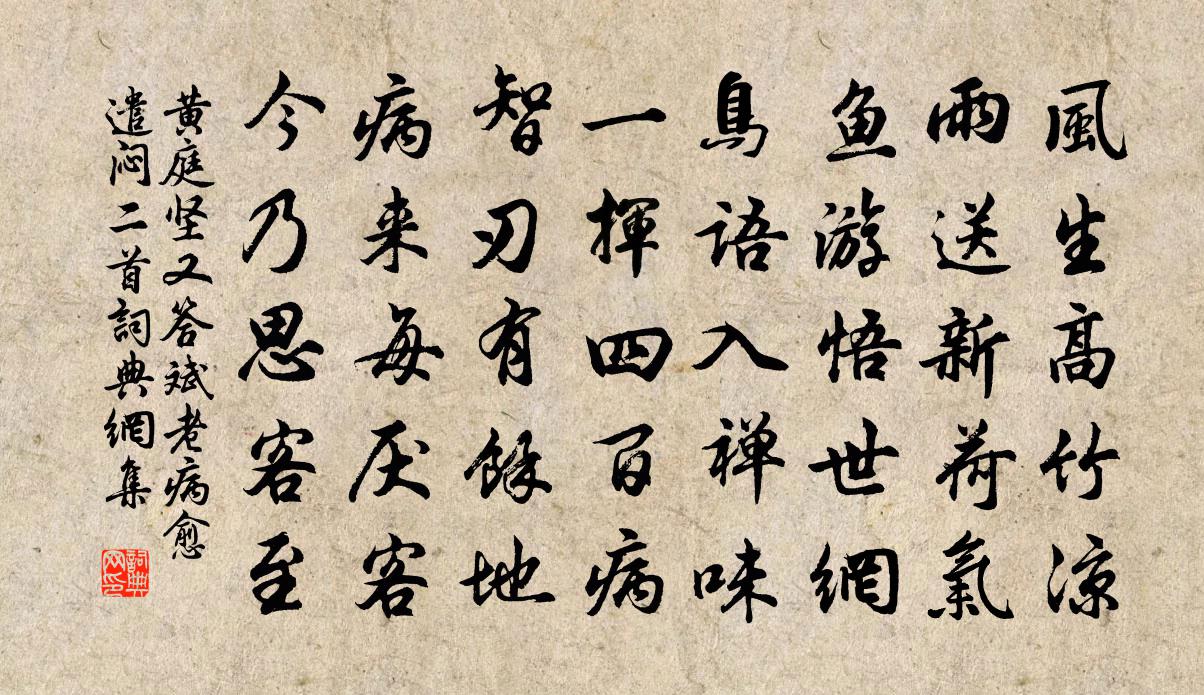 風生高竹涼
雨送新荷氣
鱼游悟世網
鳥語入禅味
一揮四百病
智刃有餘地
病来每厌客
今乃思客至
黄庭坚又答斌老病愈
遣闷二首詞典網集
詞典网印